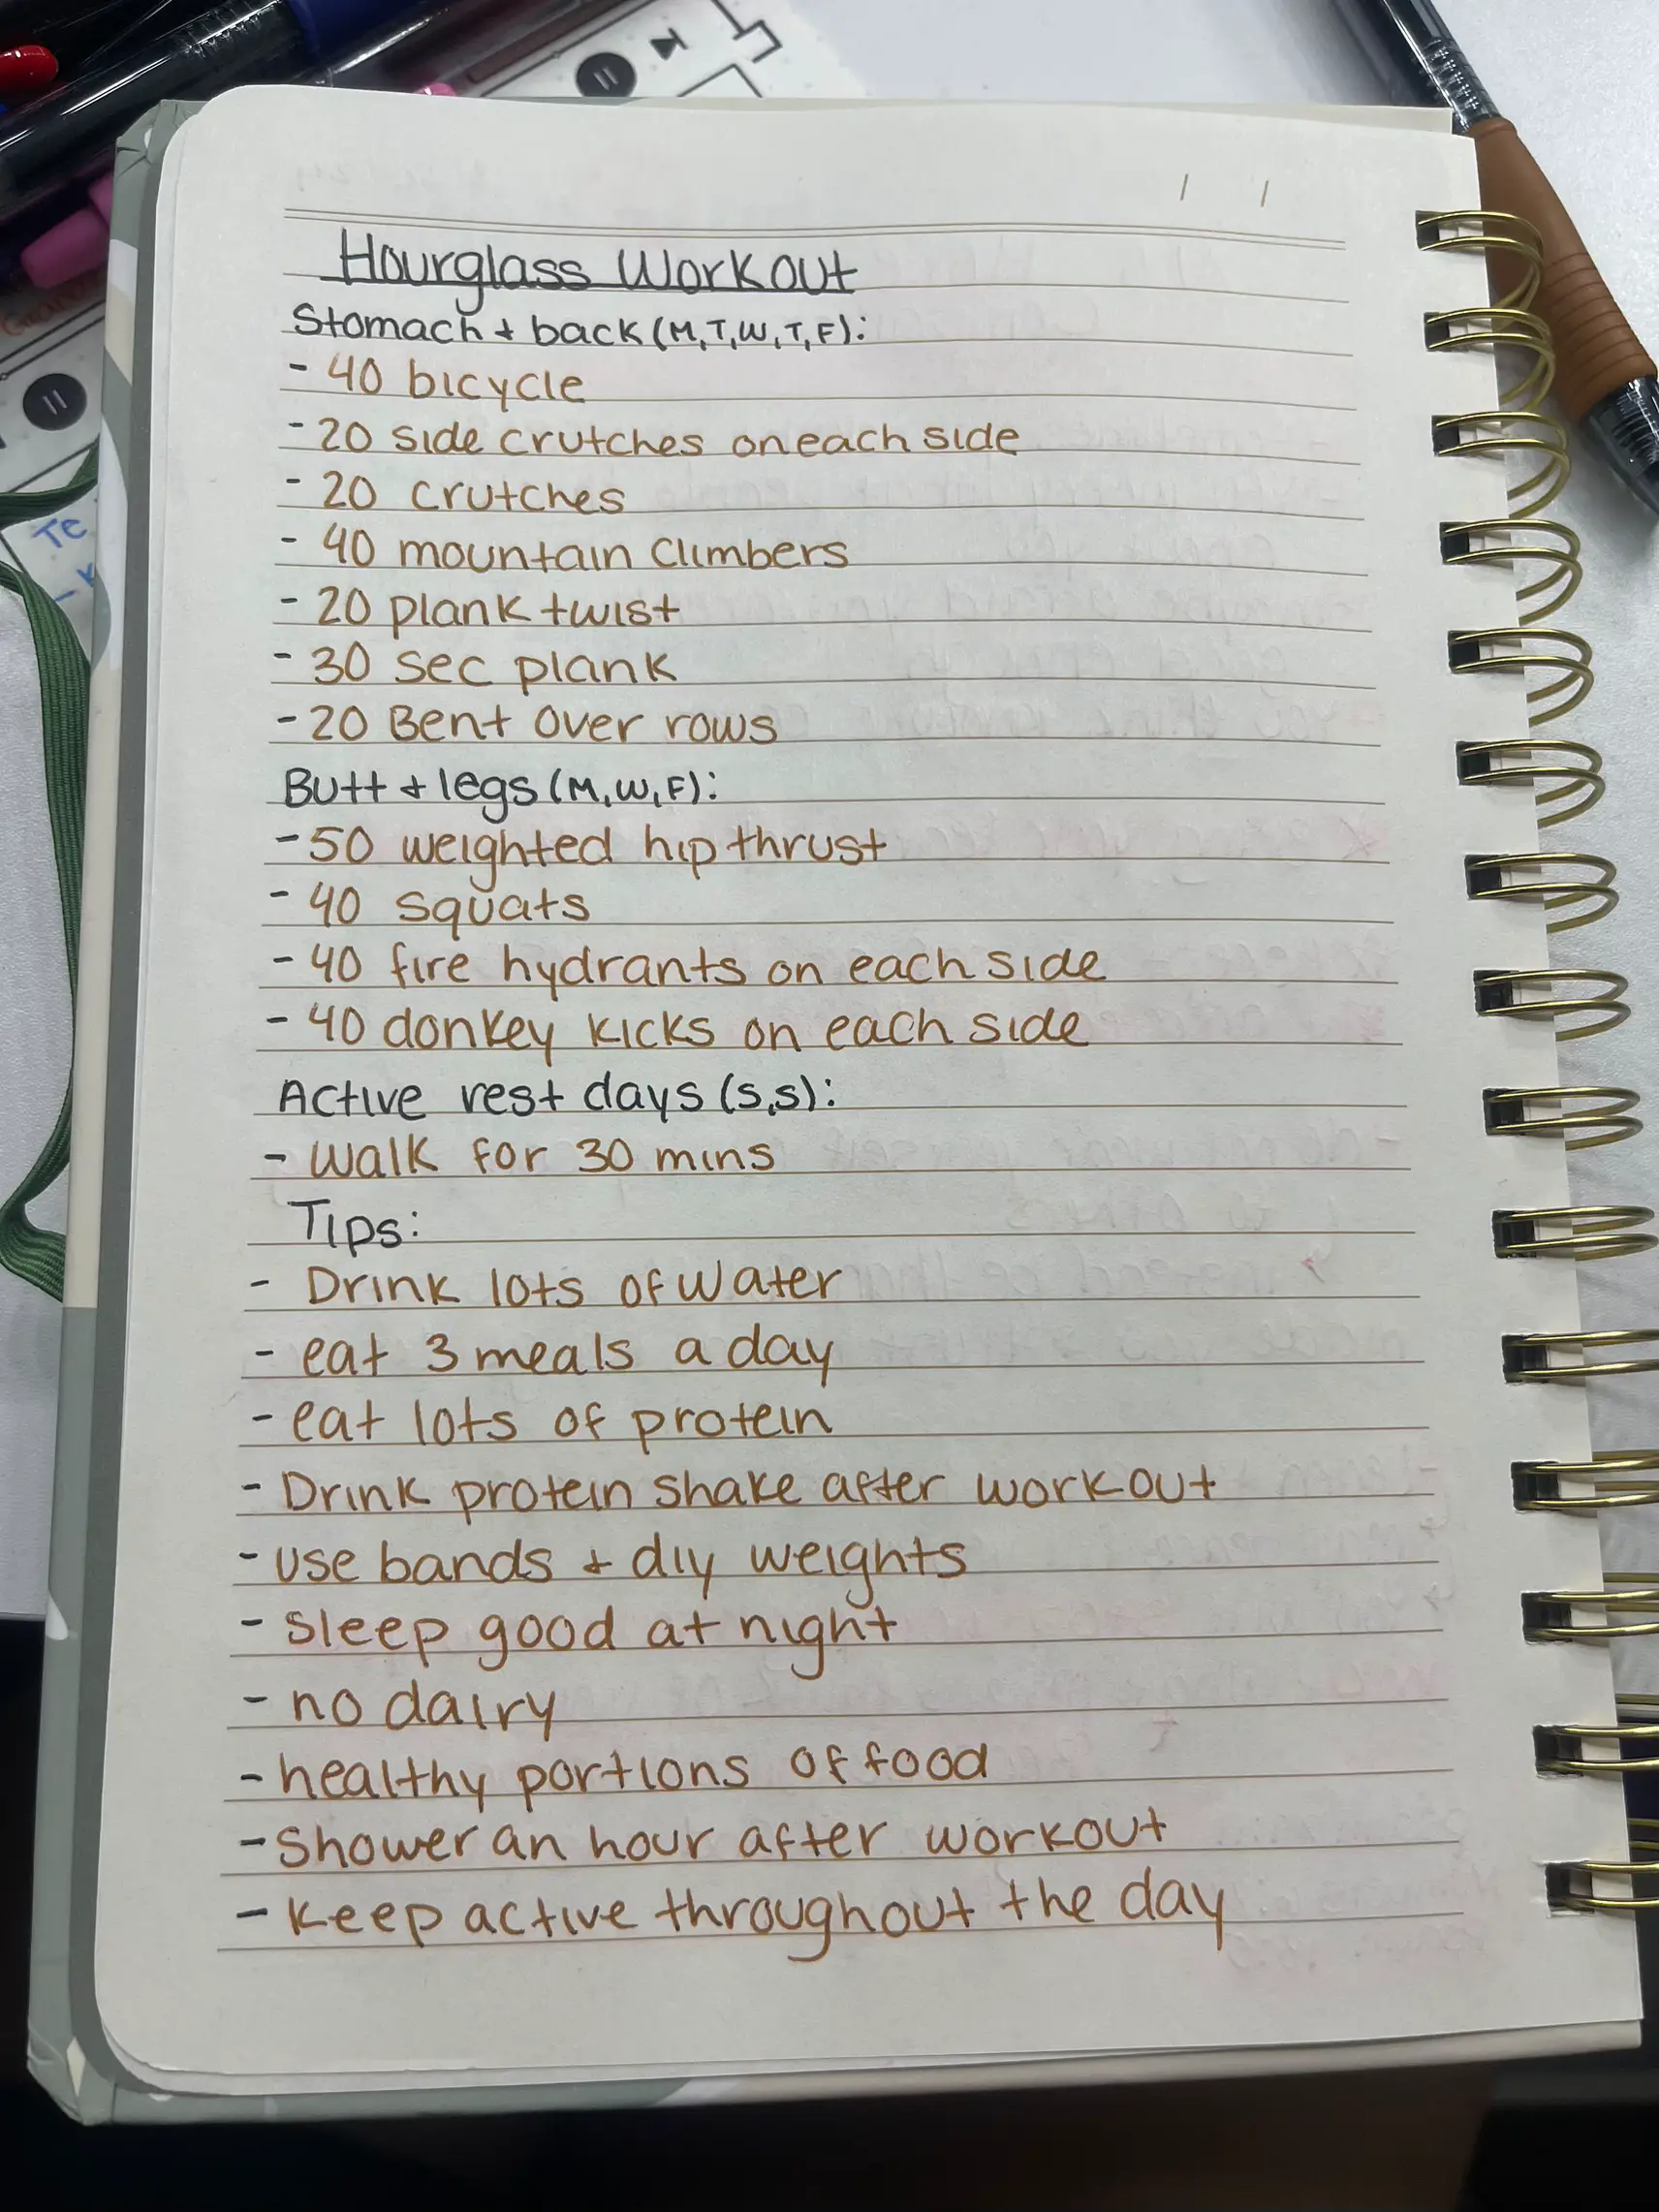 Hourglass Workout
Stomach + back (M,T,W,T,F):
- 40 bicycle
- 20 side crutches on each side
- 20 crutches
- 40 mountain climbers
- 20 plank twist
- 30 sec plank
- 20 Bent over rows
Butt + legs (M,W,F):
- 50 weighted hip thrust
- 40 squats
- 40 fire hydrants on each side
- 40 donkey kicks on each side
Active rest days (s,s):
- Walk for 30 mins
Tips:
- Drink lots of water
- eat 3 meals a day
- eat lots of protein
- Drink protein shake after workout
- use bands + diy weights
- sleep good at night
- no dairy
- healthy portions of food
- Shower an hour after workout
- Keep active throughout the day
Te